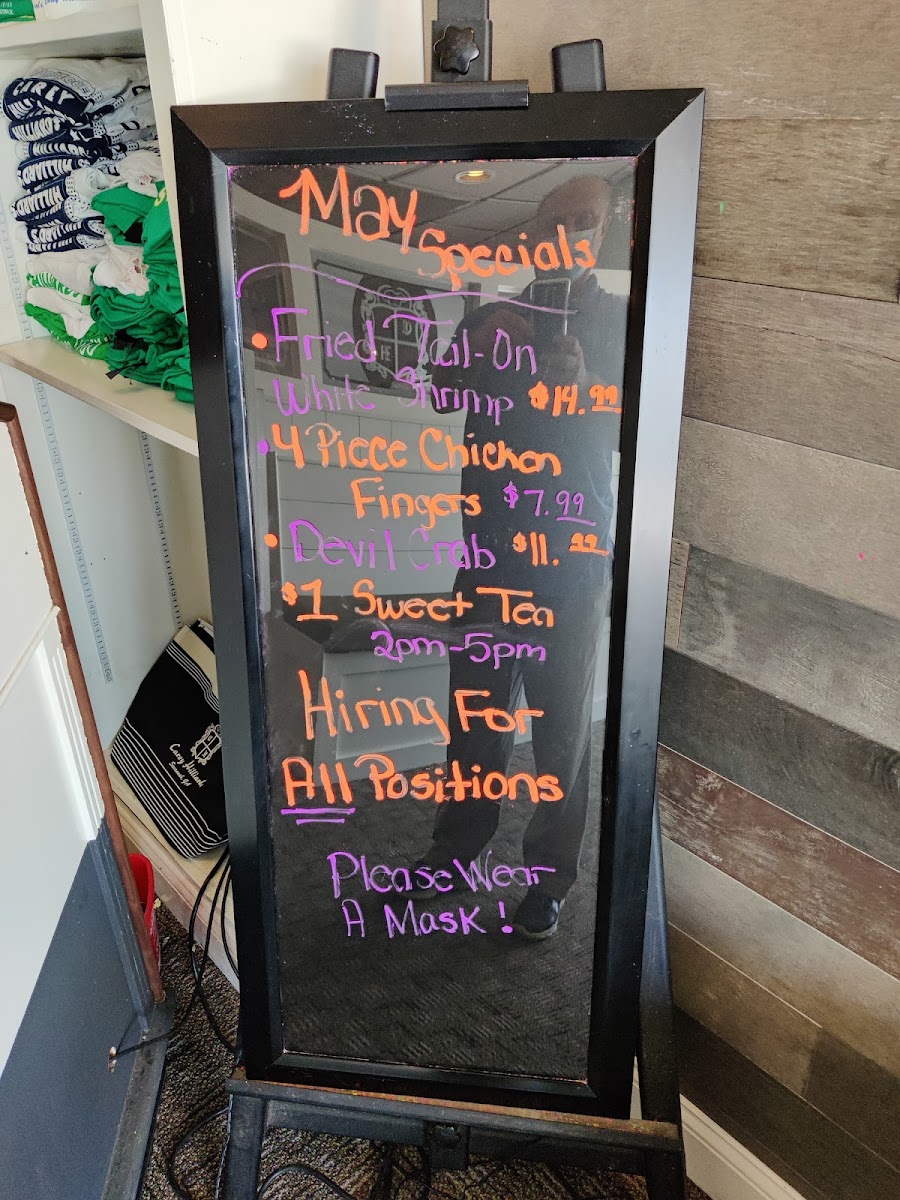 May Specials
• Fried Tail-On
White Shrimp $14.99
• 4 Piece Chicken
Fingers $7.99
• Devil Crab $11.99
$1 Sweet Tea
2pm-5pm
Hiring For
All Positions
Please Wear
A Mask!
CAREY
HILLIARD'S
HILLIARD
Carey Hilliard's